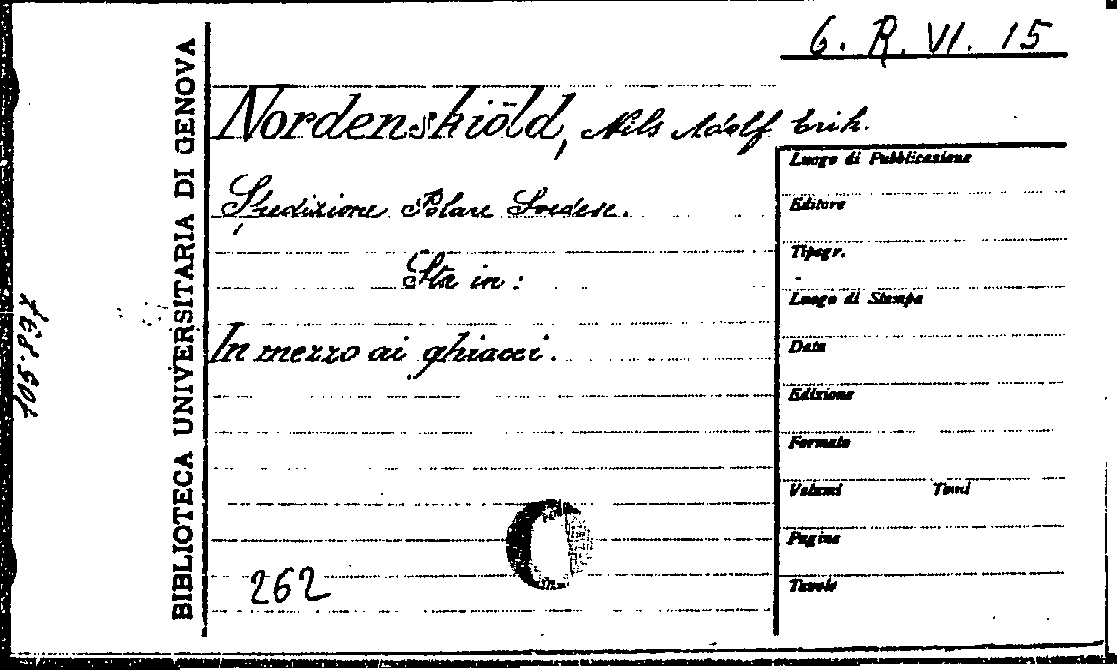 6. R. VI. 15
BIBLIOTECA UNIVERSITARIA DI GENOVA
Nordenskiöld, Nils Adolf Erik.
Spedizione Polare Svedese.
Sta in:
In mezzo ai ghiacci.
262
105.837
Luogo di Pubblicazione
Editore
Tipogr.
Luogo di Stampa
Data
Edizione
Formato
Volumi Tomi
Pagine
Tavole